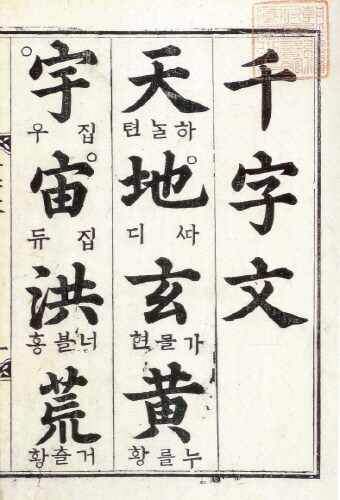 千字文
天 하ᄂᆞᆯ 텬
地 ᄯᅡ 디
玄 가믈 현
黃 누를 황
宇 집 우
宙 집 듀
洪 너블 홍
荒 거츨 황